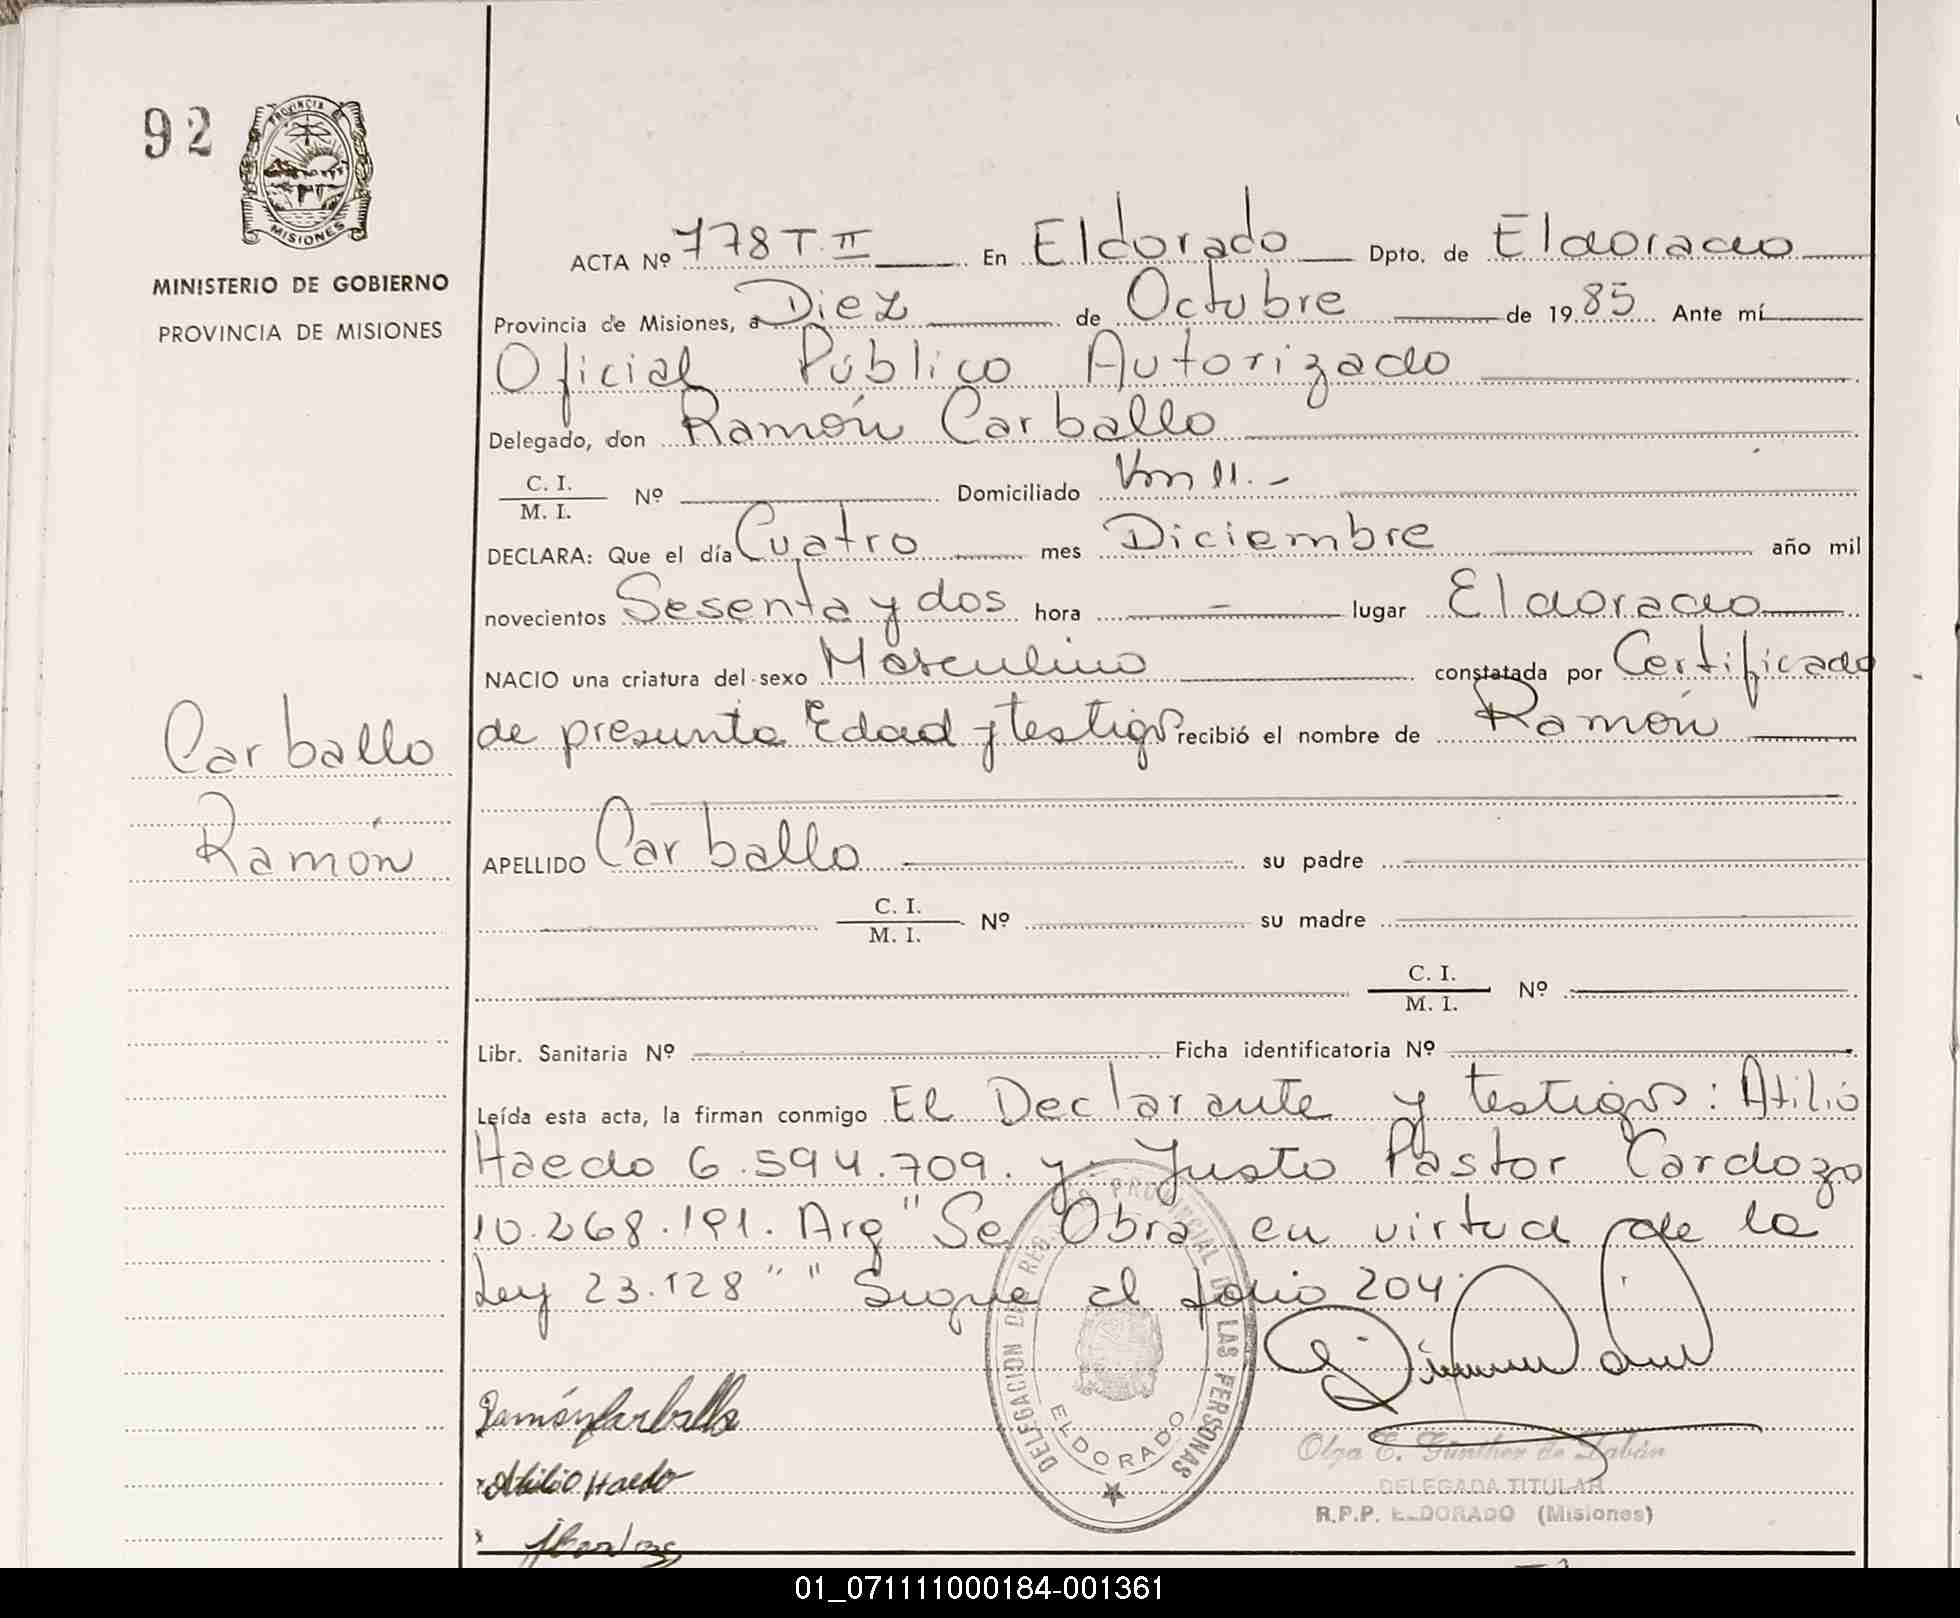 92
PROVINCIA DE
MISIONES
MINISTERIO DE GOBIERNO
PROVINCIA DE MISIONES
ACTA Nº 778 T. II En Eldorado Dpto. de Eldorado
Provincia de Misiones, a Diez de Octubre de 19 85 Ante mí
Oficial Público Autorizado
Delegado, don Ramón Carballo
C. I.
M. I. Nº Domiciliado Km 11. -
DECLARA: Que el día Cuatro mes Diciembre año mil
novecientos Sesenta y dos hora - lugar Eldorado
NACIO una criatura del sexo Masculino constatada por Certificado
de presunta Edad y testigos recibió el nombre de Ramón
Carballo
Ramón
APELLIDO Carballo su padre
C. I.
M. I. Nº su madre
C. I.
M. I. Nº
Libr. Sanitaria Nº Ficha identificatoria Nº
Leída esta acta, la firman conmigo El Declarante y testigos: Atilio
Haedo 6.594.709. y Justo Pastor Cardozo
10.268.191. Arg "Se Obra en virtud de la
Ley 23.128" " Sigue al folio 204
Ramón Carballo
Atilio Haedo
DELEGACION DEL REGISTRO PROVINCIAL DE LAS PERSONAS
ELDORADO
Olga E. Günther de
DELEGADA TITULAR
R.P.P. ELDORADO (Misiones)
01_071111000184-001361